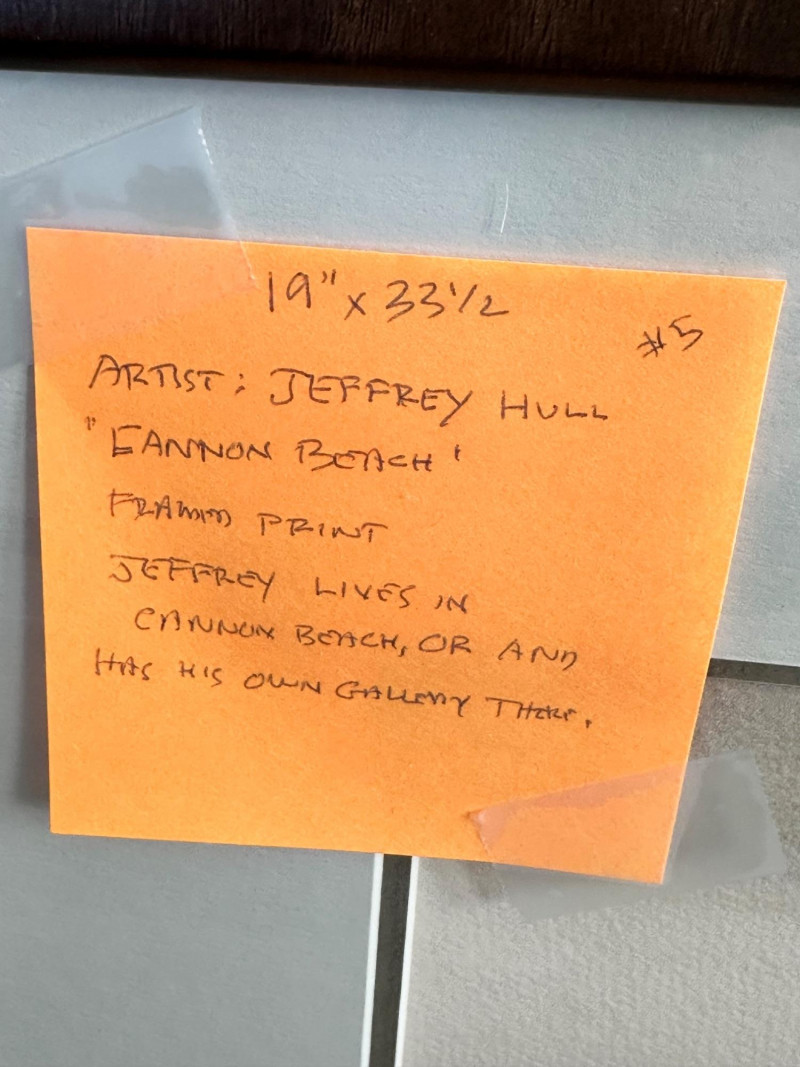 19" x 33 1/2
#5
ARTIST: JEFFREY HULL
"CANNON BEACH"
FRAMED PRINT
JEFFREY LIVES IN
CANNON BEACH, OR AND
HAS HIS OWN GALLERY THERE.